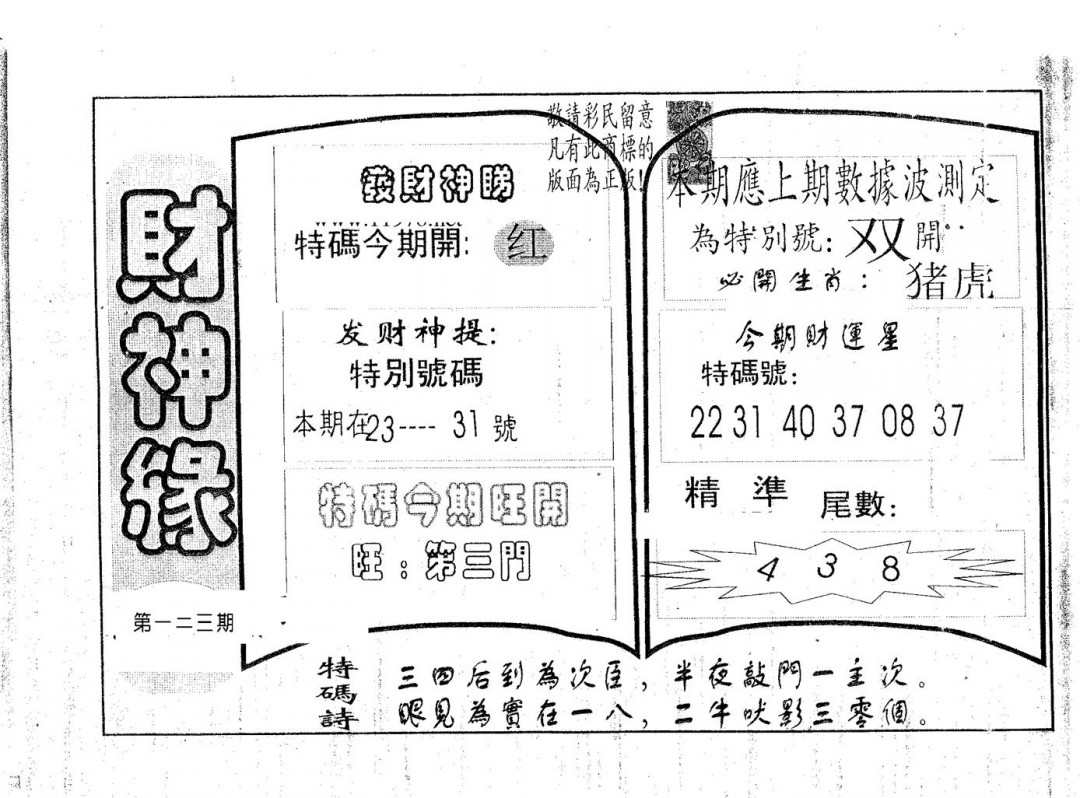 財神緣
第一二三期
敬請彩民留意
凡有此商標的
版面為正版!
發財神睇
特碼今期開: 红
发财神提:
特別號碼
本期在23----31號
特碼今期旺開
旺:第三門
本期應上期數據波測定
為特別號:双開
必開生肖:猪虎
今期財運星
特碼號:
22 31 40 37 08 37
精準 尾數:
4 3 8
特碼詩
三四后到為次臣,半夜敲門一主次。
眼見為實在一八,二牛吠影三零個。